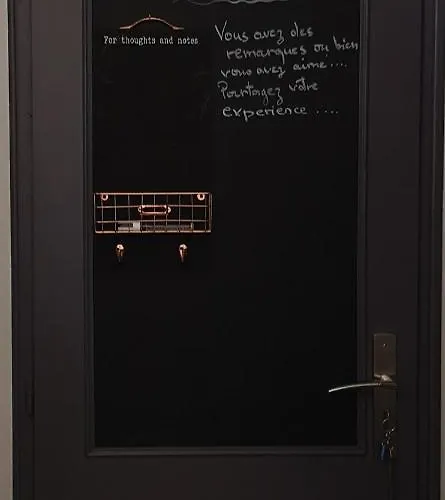 For thoughts and notes
Vous avez des
remarques ou bien
vous avez aimé....
Partagez votre
experience ....